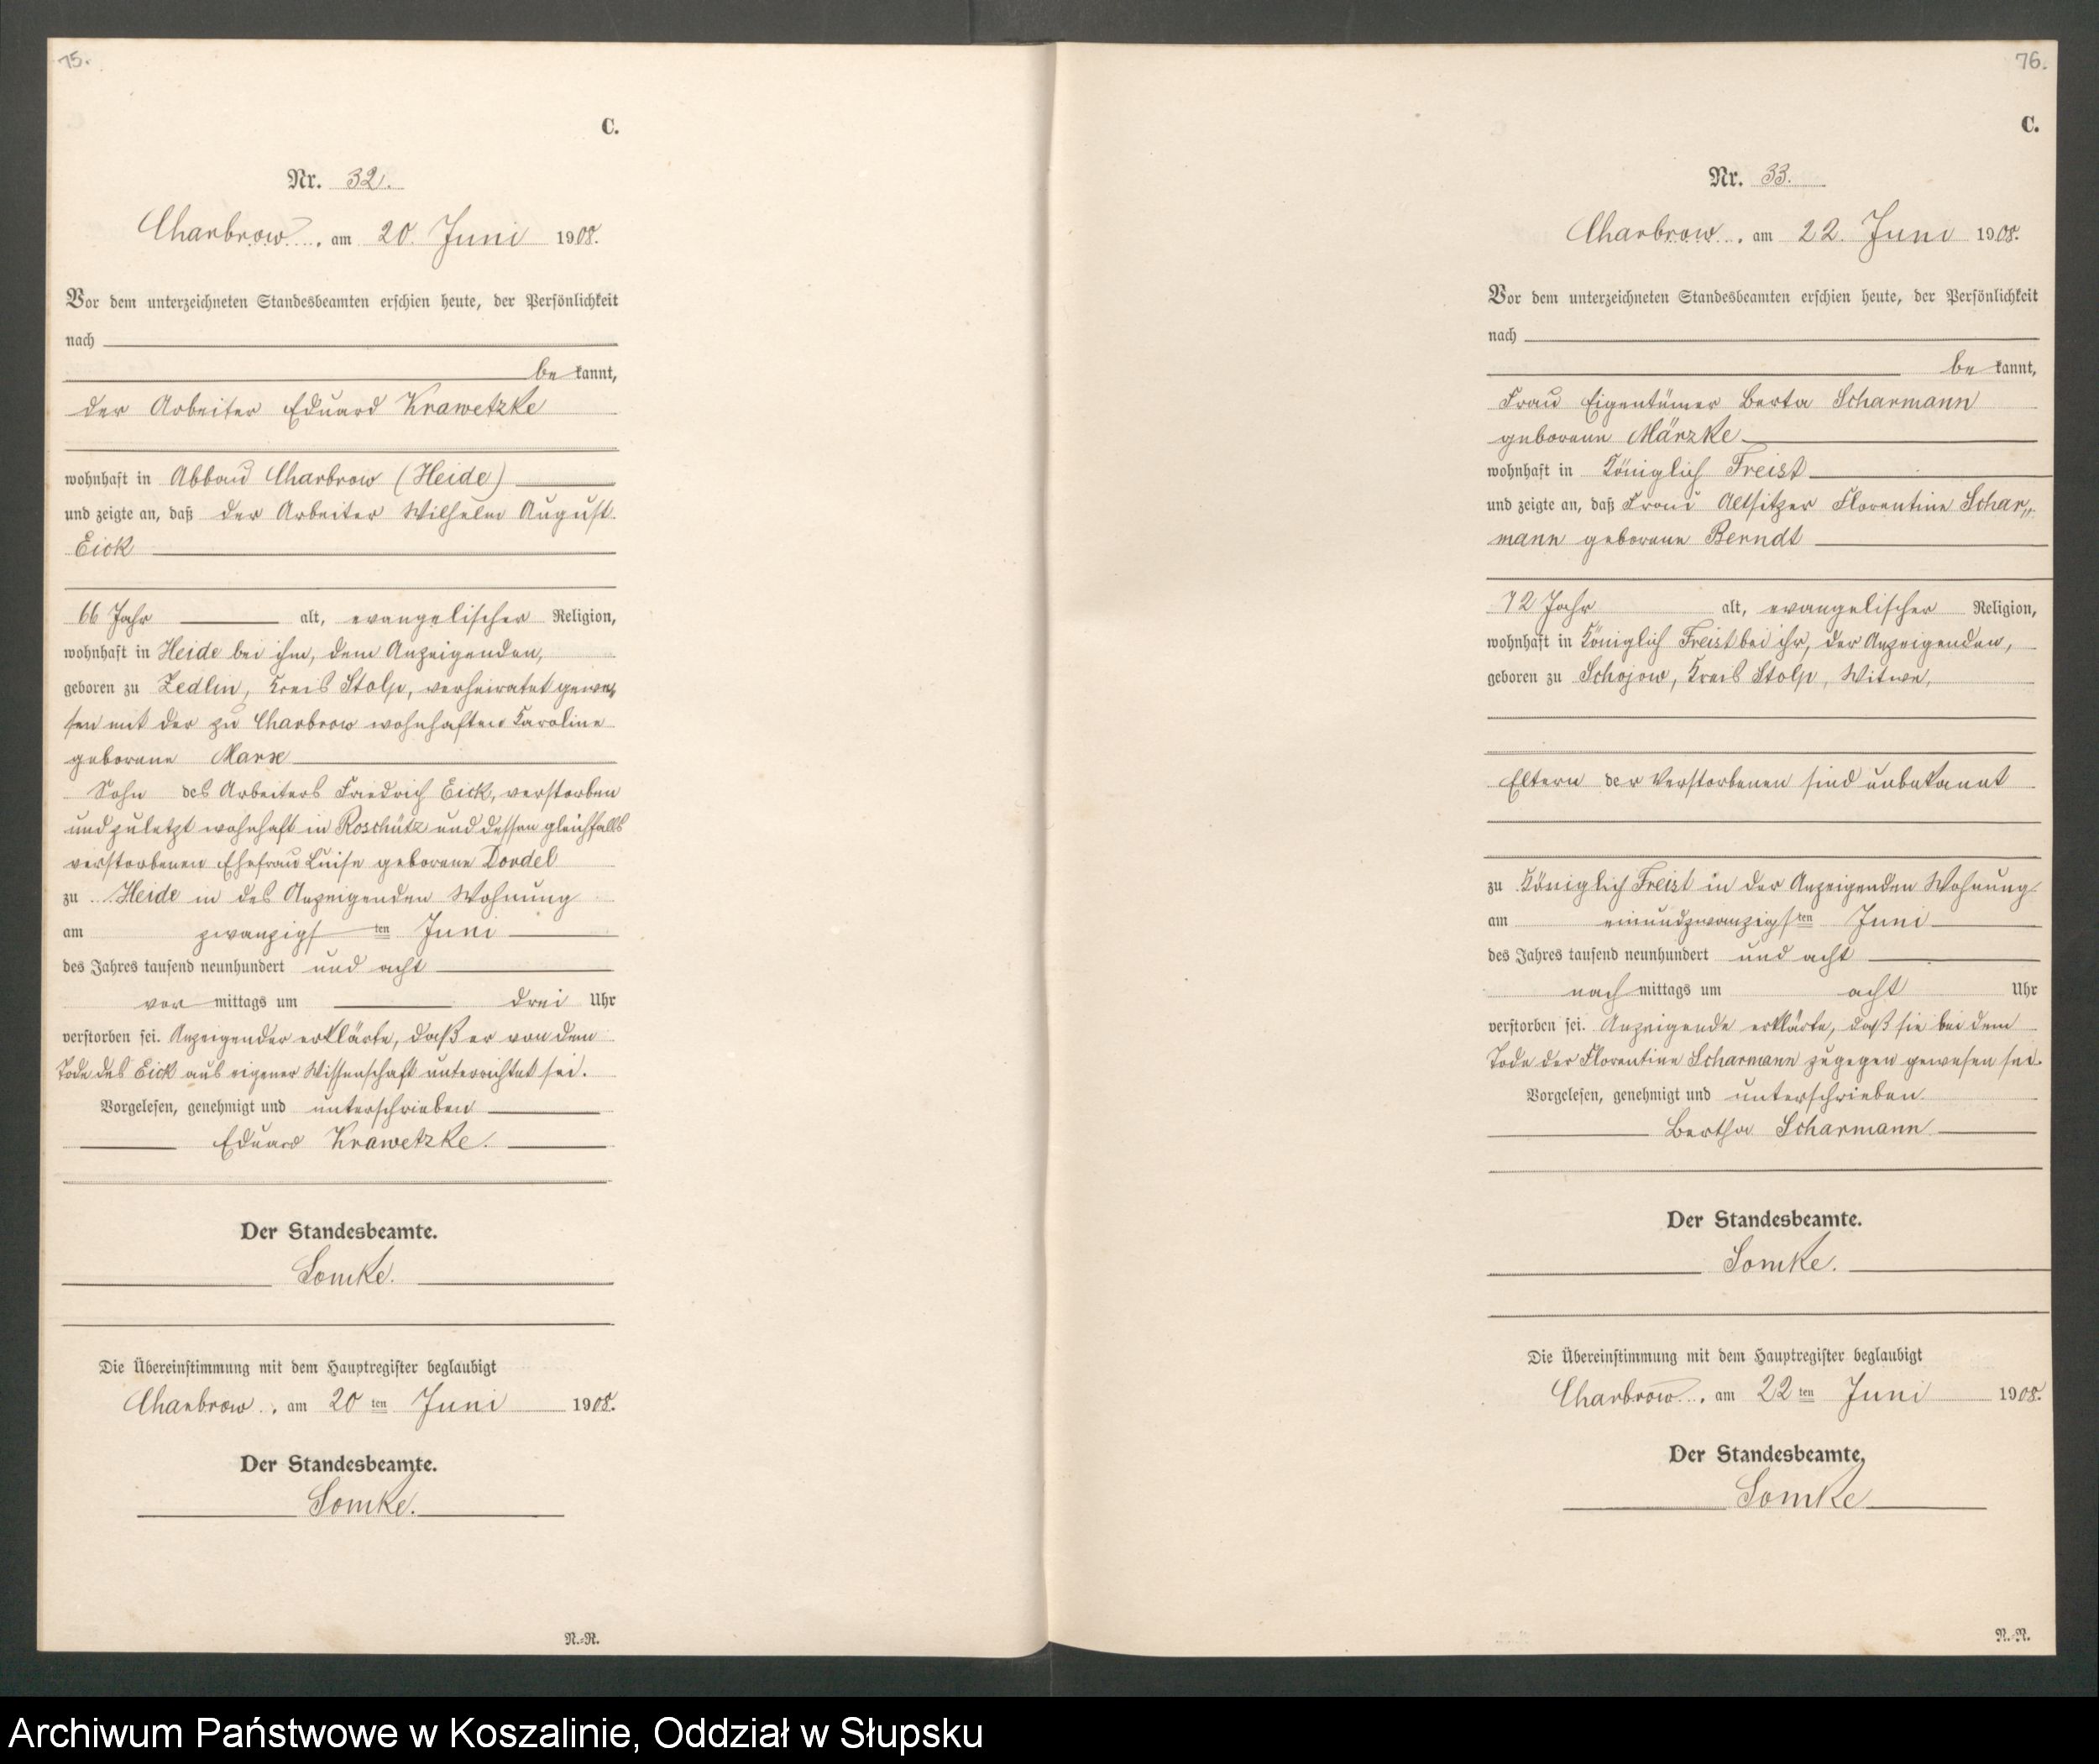 75.
C.
Nr. 32.
Charbrow, am 20. Juni 1908.
Vor dem unterzeichneten Standesbeamten erschien heute, der Persönlichkeit
nach
be kannt,
der Arbeiter Eduard Krawetzke
wohnhaft in Abbau Charbrow (Heide)
und zeigte an, daß der Arbeiter Wilhelm August
Eick
66 Jahr alt, evangelischer Religion,
wohnhaft in Heide bei ihm, dem Anzeigenden,
geboren zu Zedlin, Kreis Stolp, verheiratet gewe,
sen mit der zu Charbrow wohnhaften Karoline
geborene Marx
Sohn des Arbeiters Friedrich Eick, verstorben
und zuletzt wohnhaft in Roschütz und dessen gleichfalls
verstorbenen Ehefrau Luise geborene Dordel
zu Heide in des Anzeigenden Wohnung
am zwanzigsten Juni
des Jahres tausend neunhundert und acht
vor mittags um drei Uhr
verstorben sei. Anzeigender erklärte, daß er von dem
Tode des Eick aus eigener Wissenschaft unterrichtet sei.
Vorgelesen, genehmigt und unterschrieben
Eduard Krawetzke.
Der Standesbeamte.
Somke.
Die Übereinstimmung mit dem Hauptregister beglaubigt
Charbrow, am 20 ten Juni 1908.
Der Standesbeamte.
Somke.
N.=R.
76.
C.
Nr. 33.
Charbrow, am 22. Juni 1908.
Vor dem unterzeichneten Standesbeamten erschien heute, der Persönlichkeit
nach
be kannt,
Frau Eigentümer Berta Scharmann
geborene Märzke
wohnhaft in Königlich Freist
und zeigte an, daß Frau Altsitzer Florentine Schar„
mann geborene Berndt
72 Jahr alt, evangelischer Religion,
wohnhaft in Königlich Freist bei ihr, der Anzeigenden,
geboren zu Schojow, Kreis Stolp, Witwe,
Eltern der Verstorbenen sind unbekannt
zu Königlich Freist in der Anzeigenden Wohnung
am einundzwanzigsten Juni
des Jahres tausend neunhundert und acht
nach mittags um acht Uhr
verstorben sei. Anzeigende erklärte, daß sie bei dem
Tode der Florentine Scharmann zugegen gewesen sei.
Vorgelesen, genehmigt und unterschrieben.
Bertha Scharmann
Der Standesbeamte.
Somke.
Die Übereinstimmung mit dem Hauptregister beglaubigt
Charbrow, am 22 ten Juni 1908.
Der Standesbeamte,
Somke
N.=R.
Archiwum Państwowe w Koszalinie, Oddział w Słupsku